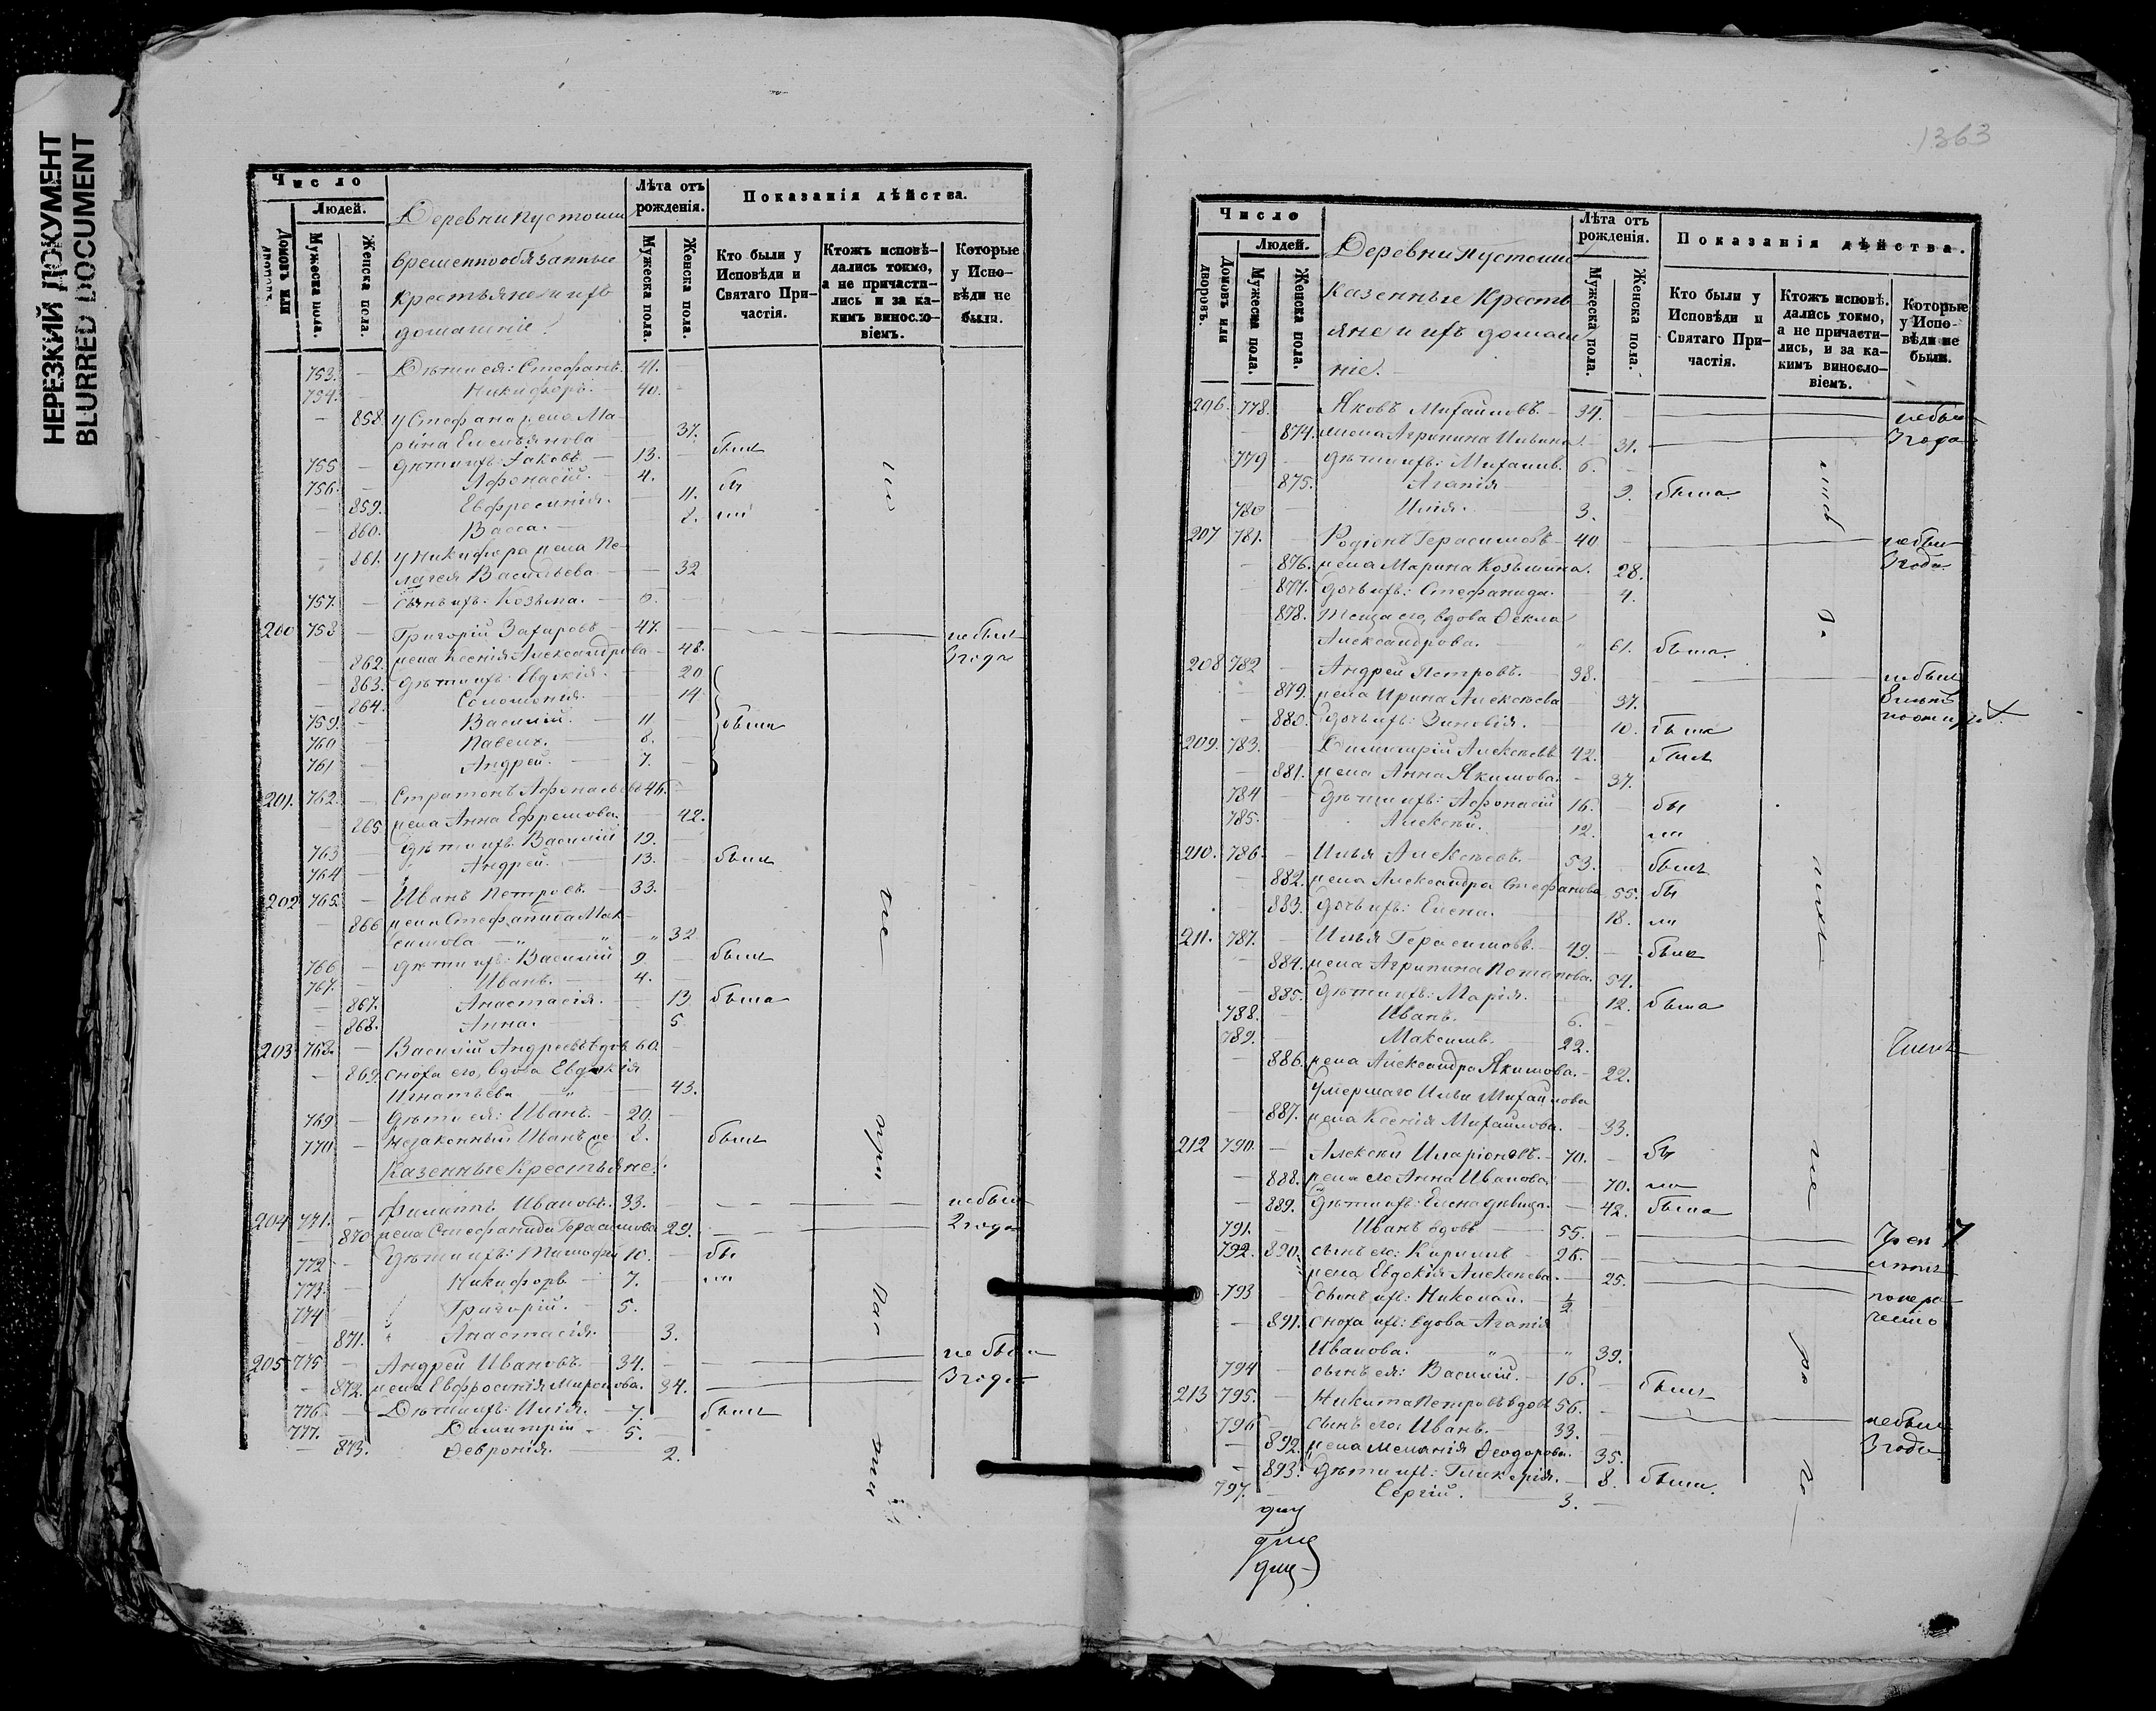 НЕРЕЗКИЙ ДОКУМЕНТ
BLURRED DOCUMENT
Число
Людей.
Домовъ или дворовъ.
Мужеска пола.
Женска пола.
Деревни Пустоши
временнообязанные
крестьяне и ихъ
домашніе.
Лѣта отъ рожденія.
Мужеска пола.
Женска пола.
Показанія дѣйства.
Кто были у Исповѣди и Святаго Причастія.
Ктожъ исповѣдались токмо, а не причастились и за какимъ винословіемъ.
Которые у Исповѣди не были.
753. — Дѣти ея: Стефанъ. 41. —
754. — Никифоръ. — 40. —
— 858 У Стефана жена Ма-
рина Емельянова — 37.
755 — дѣти ихъ: Іаковъ. — 13. — были
756. — Афонасій. — 4.
— 859. Евфросинія. — 11. бы
— 860. Васса. — 8. ли
— 861. У Никифора жена Пе-
лагея Васильева — — 32
757. — Сынъ ихъ. Козьма. — 0. —
200 758 — Григорій Захаровъ — 47. — не были
— 862. жена Ксенія Александрова — 48. 3 года
— 863. дѣти ихъ: Евдокія. — 20
— 864. Соломонія. — 14
759. — Василій. — 11. — были
760 — Павелъ. — 8. —
761 — Андрей. — 7. —
201. 762. — Стратонъ Афонасьевъ 46. —
— 865 жена Анна Ефремова. — 42.
763 — дѣти ихъ Василій 19. —
764 — Андрей. — 13. — были
202 765. — Иванъ Петровъ. — 33.
— 866 жена Стефанида Мак-
симова — „ — „ — „ 32
766 — дѣти ихъ: Василій 9 — были
767. — Иванъ. — 4. —
— 867. Анастасія. — 13 была
— 868. Анна. — 5.
203 768. — Василій Андреевъ вдов. 60. —
— 869. сноха его, вдова Евдокія
Игнатьева — „ — 43.
769 — дѣти ея: Иванъ. — 20. —
770 — незаконный Иванъ же 8. были
Казенные Крестьяне:
204 771. — Филиппъ Ивановъ. 33. — не были
— 870. жена Стефанида Герасимова 29. — 2 года
772 — дѣти ихъ: Тимофей 10. — бы
773. — Никифоръ — 7. — ли
774 Григорій. — 5.
— 871. „ Анастасія — 3.
205 775 — Андрей Ивановъ — 34. — не были
— 872. жена Евфросинія Миронова. 34. — 3 года
776 — Дѣти ихъ: Илія. — 7. — были
777. — Димитрій — 5. —
— 873. Февронія. — 2.
1363
Число
Людей.
Домовъ или дворовъ.
Мужеска пола.
Женска пола.
Деревни Пустоши
Казенные Кресть
яне и ихъ домаш
ніе. —
Лѣта отъ рожденія.
Мужеска пола.
Женска пола.
Показанія дѣйства.
Кто были у Исповѣди и Святаго Причастія.
Ктожъ исповѣдались токмо, а не причастились, и за какимъ винословіемъ.
Которые у Исповѣди не были.
206. 778. Яковъ Михайловъ — 34. — не были
874. жена Агрипина Ильина. — 31. — 3 года
779 — дѣти ихъ: Михаилъ. 6. —
875. Агапія — 9. была
780 — Илія. — 3.
207 781. — Родіонъ Герасимовъ — 40 — не были
— 876. жена Марина Козьмина. 28. 3 года
— 877. дочь ихъ: Стефанида. — 4.
878. теща его, вдова Фекла
Александрова. — „ 61. была.
208 782 — Андрей Петровъ. — 38. — не были
— 879. жена Ирина Алексѣева — 37.
— 880. дочь ихъ: Зиновія. — 10. была
209. 783. — Димитрій Алексѣевъ 42. — былъ
— 881. жена Анна Якимова. — 37.
784 — дѣти ихъ: Афонасій 16. — бы
785. Алексѣй. — 12. — ли
210. 786. — Илья Алексѣевъ. — 53. былъ
— 882. жена Александра Стефанова 55. бы
— 883. дочь ихъ: Елена. — 18. ла
211. 787. — Илья Герасимовъ. — 49. — былъ
— 884. жена Агрипина Потапова. 54.
— 885. дѣти ихъ: Марія. — 12. была
788. Иванъ. — 6. —
789. Максимъ. — 22.
— 886. жена Александра Якимова. — 22.
Умершаго Ильи Михайлова
— 887. жена Ксенія Михайлова. — 33.
212 790. — Алексѣй Иларіоновъ. — 70. — бы
— 888. жена его Анна Иванова — 70. ли
— 889. дѣти ихъ: Елена дѣвица. — 42. была
791. Иванъ вдовъ — 55. —
792. 890. сынъ его: Кириллъ — 26. —
жена Евдокія Алексѣева. — 25. —
793 — сынъ ихъ: Николай. — 1/2
— 891. сноха ихъ: вдова Агапія
Иванова. „ „ 39.
794 — сынъ ея: Василій. — 16. — былъ
213 795. — Никита Петровъ вдовъ 56. —
796 — Сынъ его: Иванъ. — 33. — не были
— 892. жена Меланія Феодорова. 35. 3 года
— 893. дѣти ихъ: Гликерія. — 8. была.
797. — Сергій. — 3. —